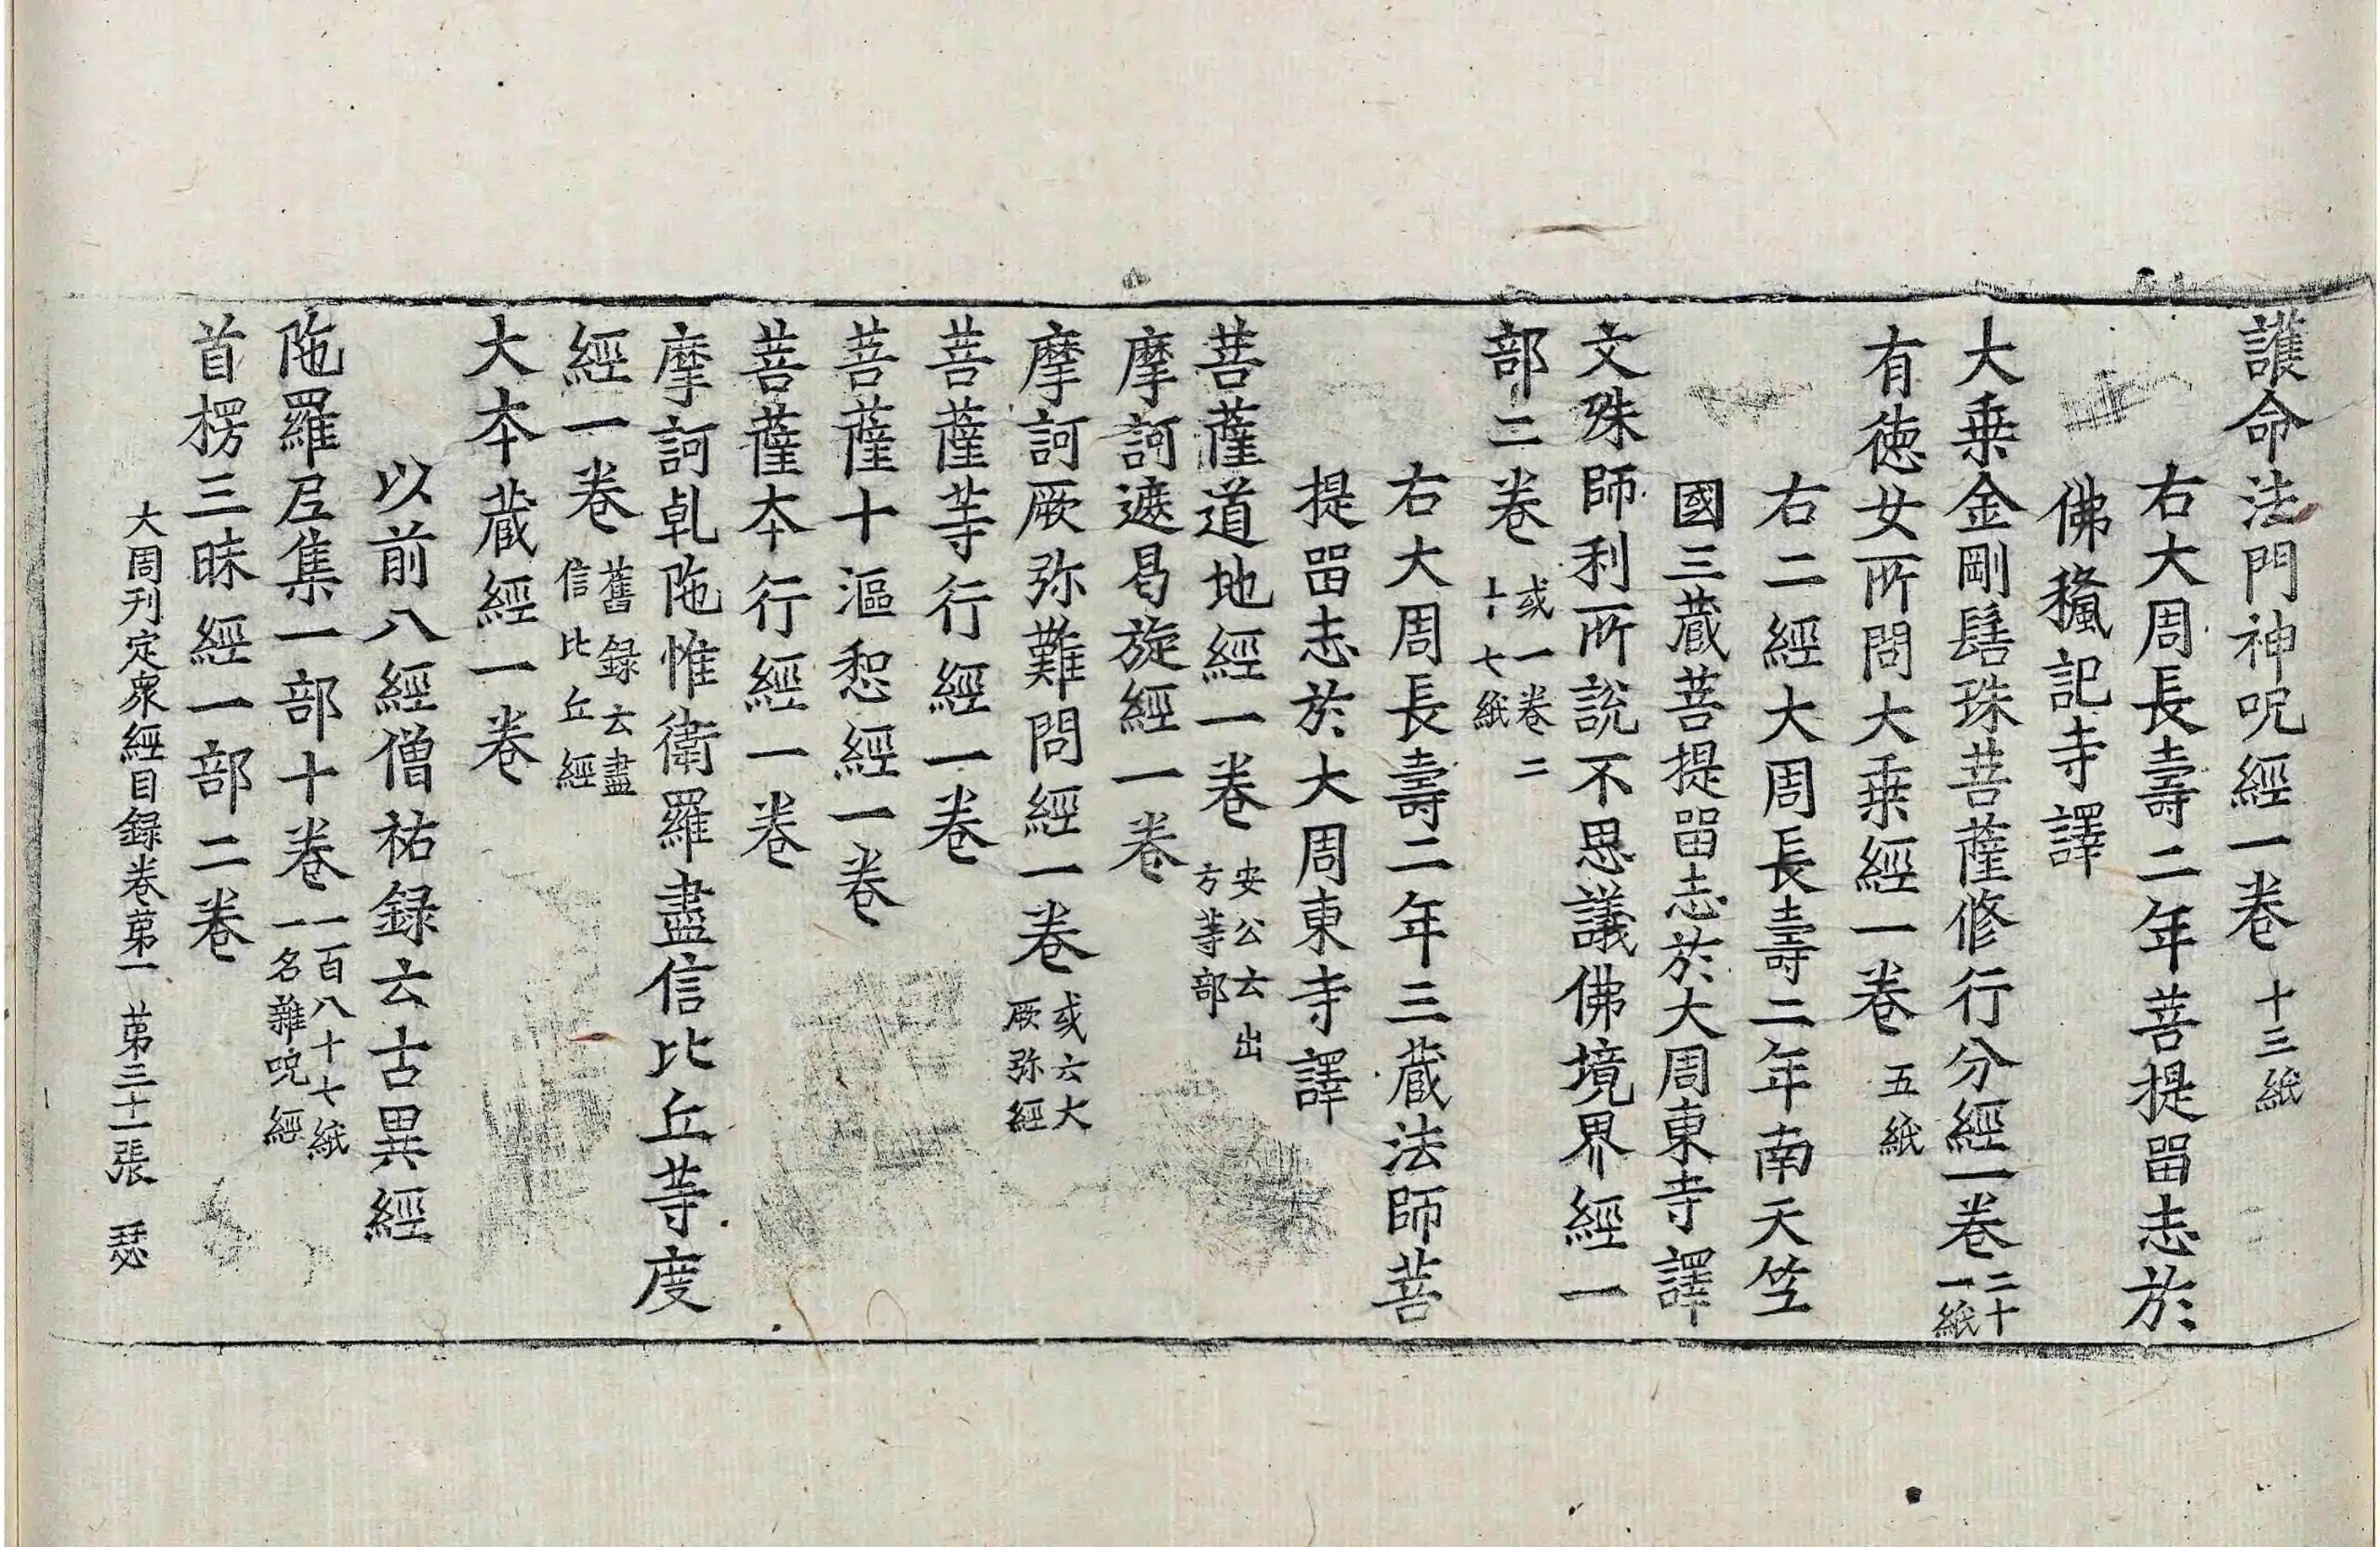 護命法門神呪經一卷 十三紙
右大周長壽二年菩提畱志於
佛𥡳記寺譯
大乗金剛髻珠菩薩修行分經一卷 二十一紙
有徳女所問大乗經一卷 五紙
右二經大周長壽二年南天笁
國三藏菩提畱志於大周東寺譯
文殊師利所說不思議佛境界經一
部二卷 或一卷二十七紙
右大周長壽二年三藏法師菩
提畱志於大周東寺譯
菩薩道地經一卷 安公云出方等部
摩訶遮曷旋經一卷
摩訶厥弥難問經一卷 或云大厥弥經
菩薩等行經一卷
菩薩十漚惒經一卷
菩薩本行經一卷
摩訶乹陁惟衛羅盡信比丘等度
經一卷 舊録云盡信比丘經
大本藏經一卷
以前八經僧祐録云古異經
陁羅尼集一部十卷 一百八十七紙一名雜呪經
首楞三昧經一部二卷
大周刋定衆經目録卷苐一 苐三十一張 瑟